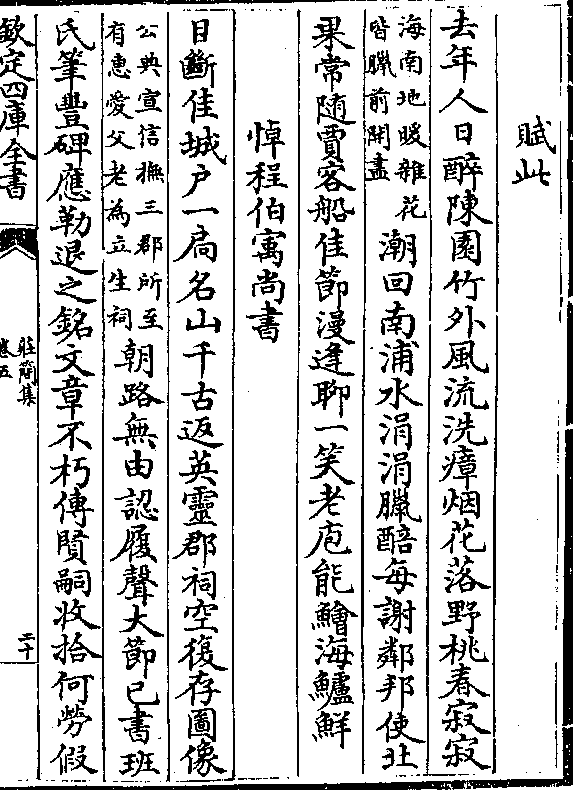 賦此
去年人日醉陳園竹外風流洗瘴烟花落野桃春寂寂
海南地暖雜花
皆臘前開盡
潮回南浦水涓涓臘醅每謝鄰邦使北
果常隨賈客船佳節漫逢聊一笑老庖能鱠海鱸鮮
悼程伯寓尚書
目斷佳城户一扃名山千古返英靈郡祠空復存圖像
公典宣信撫三郡所至
有惠愛父老為立生祠
朝路無由認履聲大節已書班
氏筆豐碑應勒退之銘文章不朽傳賢嗣收拾何勞假
欽定四庫全書
莊簡集
卷五
二十